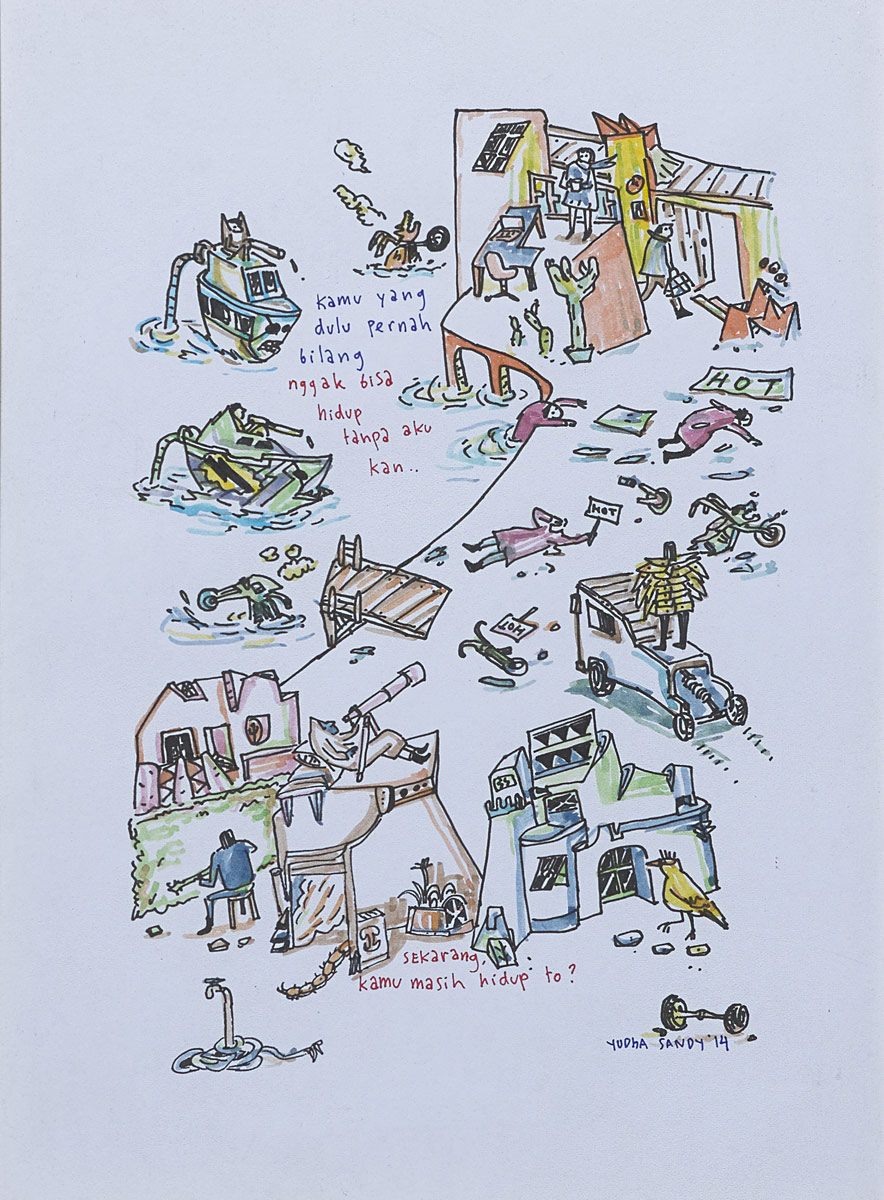 kamu yang
dulu pernah
bilang
nggak bisa
hidup
tanpa aku
kan..
HOT
HOT
HOT
551
SEKARANG,
kamu masih hidup to?
YUDhA SANDY '14